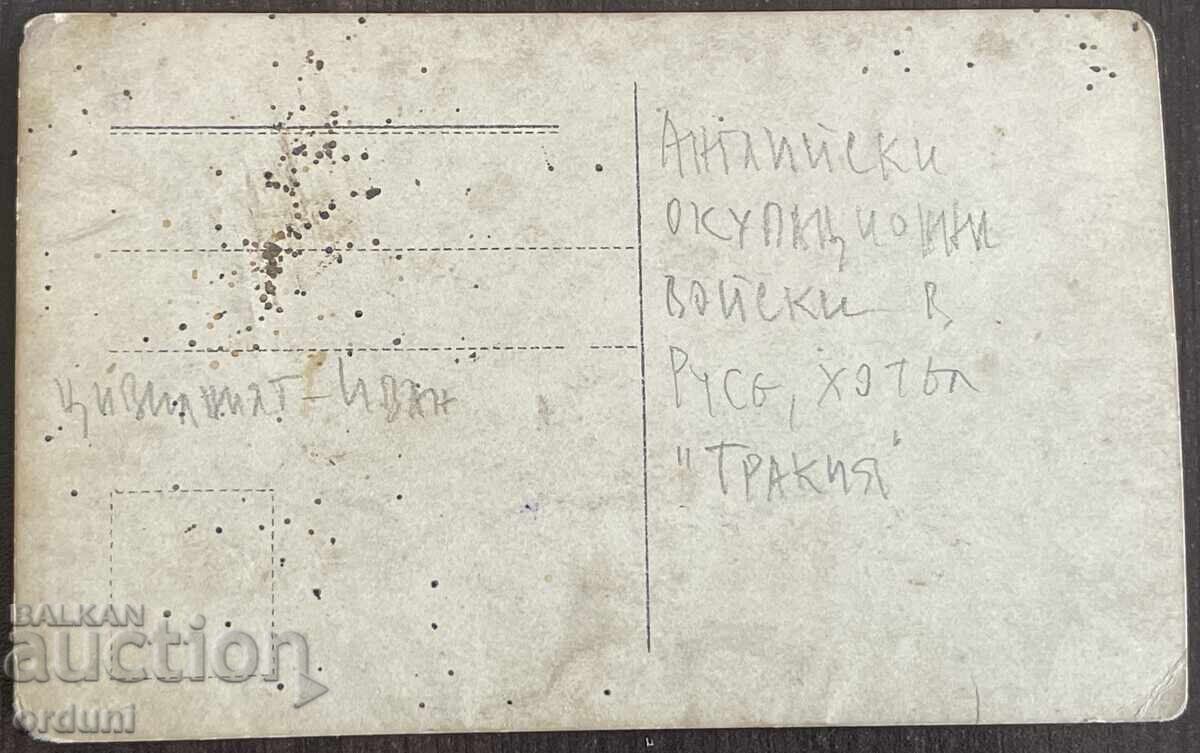 Английски
окупационни
войски в
Русе, хотел
"Тракия"
цивилният - Иван
BALKAN
auction
orduni